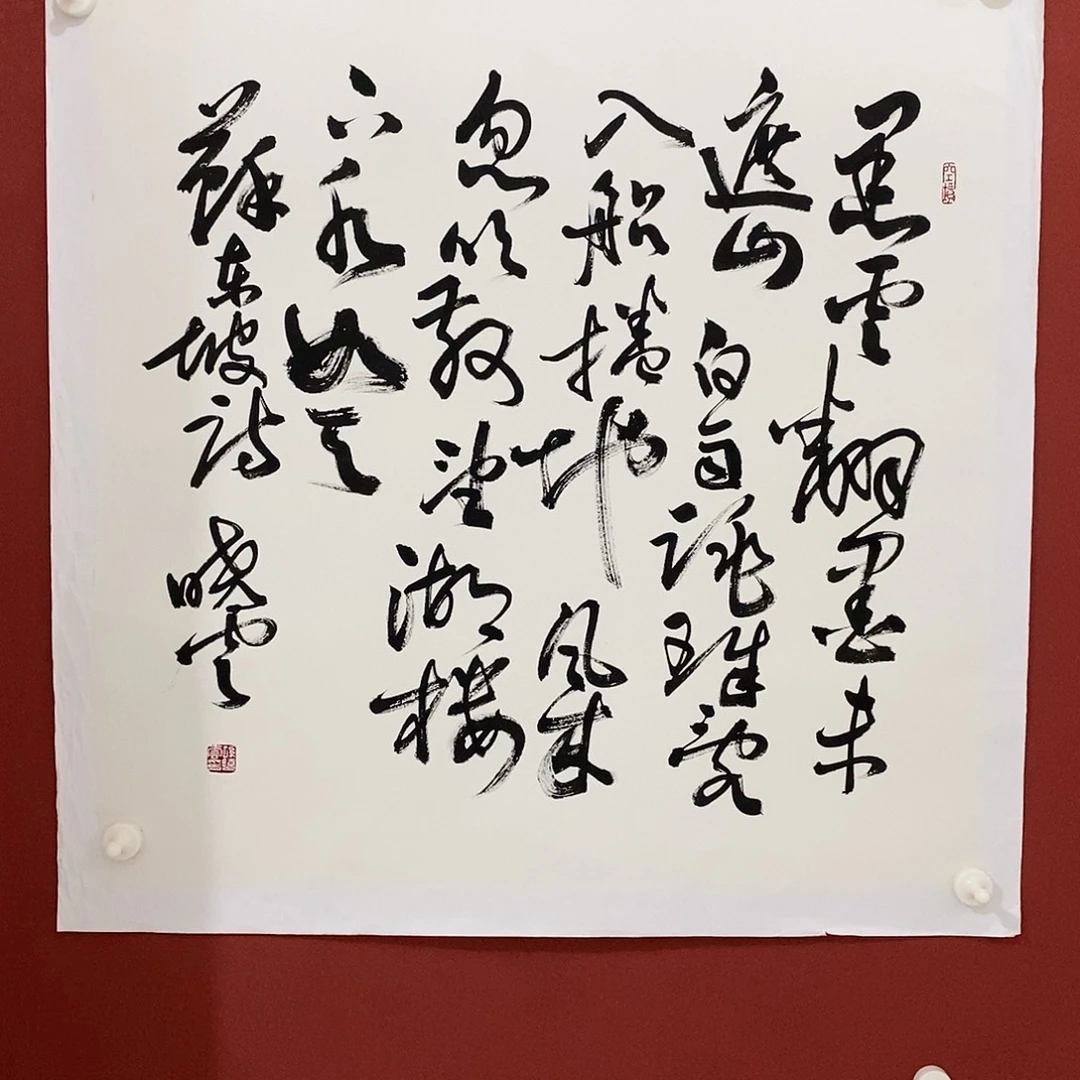 黑雲翻墨未
遮山白雨跳珠亂
入船捲地風來
忽吹散望湖樓
下水如天
蘇東坡詩 曉雲